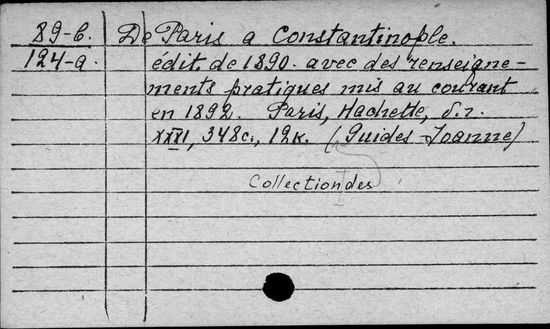 89-б. De Paris a Constantinople.
124-a. édit. de 1890. avec des renseigne-
ments pratiques mis au courant
en 1892. Paris, Hachette, s.a.
XXXI, 348c., 12к. (Guides-Joanne)
Collection des